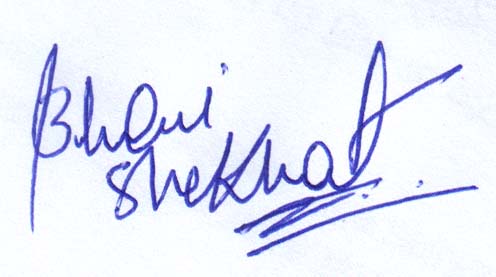 Bhavi
Shekhat